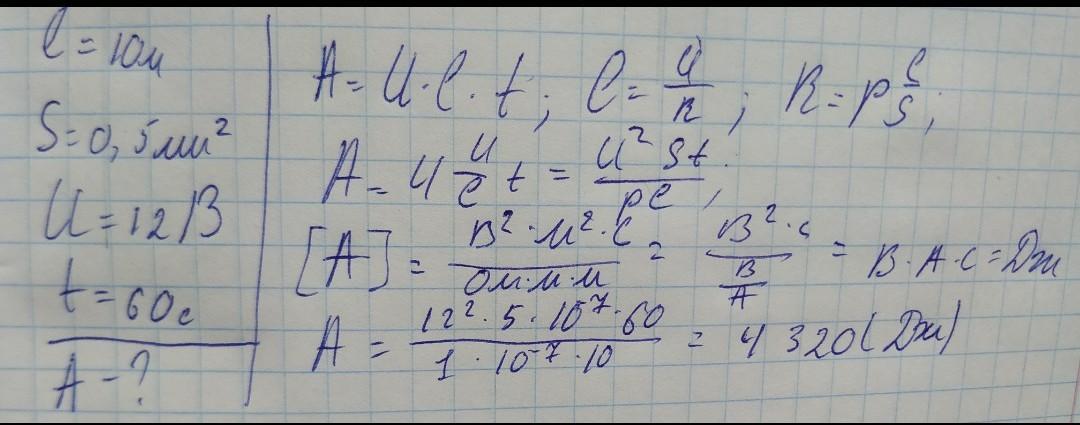 l = 10м
S = 0,5мм²
U = 12В
t = 60с
A - ?
A = U · l · t ; l = U/R ; R = ρ l/S ;
A = U U/l t = U² St/ρl ;
[A] = В² · м² · с/Ом·м·м = В² · с/(В/А) = В · А · с = Дж
A = 12² · 5 · 10⁻⁷ · 60/1 · 10⁻⁷ · 10 = 4 320 (Дж)